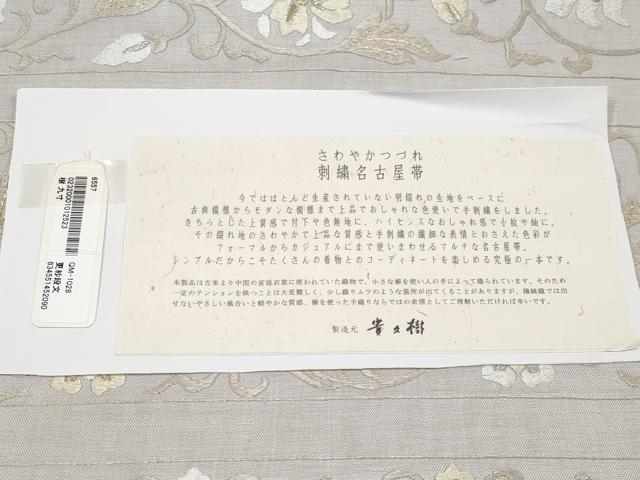 さわやかつづれ
刺繍名古屋帯
今ではほとんど生産されていない明綴れの生地をベースに
古典模様からモダンな模様まで上品でおしゃれな色使いで手刺繍をしました。
きちっとした上質感で付下や色無地に、ハイセンスなおしゃれ感で小紋や紬に。
その綴れ地のさわやかで上品な質感と手刺繍の繊細な表情とおさえた色彩が
フォーマルからカジュアルにまで使いまわせるマルチな名古屋帯。
シンプルだからこそたくさんの着物とのコーディネートを楽しめる究極の一本です。
本製品は古来より中国の宮廷衣裳に使われていた織物で、小さな櫛を使い人の手によって織られています。そのため
一定のテンションを保つことは大変難しく、少し織りムラのような箇所が出てくることがありますが、機械織では出
せないやさしい風合いと軽やかな質感、櫛を使った手織りならではの表情としてご理解いただければ幸いです。
製造元 貴久樹
6557
02320001012523
樹 九寸
OM-1028
更紗段文
634551452090